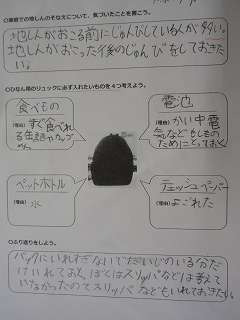 ○家庭での地しんのそなえについて、気づいたことを書こう。
地しんがおこる前にじゅんびしているんが多い。
地しんがおこった後のじゅんびをしておきた
い。
○ひなん用のリュックに必ず入れたいものを4つ考えよう。
食べもの
(理由) すぐ食べれ
る缶詰やカップ
電池
(理由) かい中電
気などもしもの
ためにとっておく
ペットボトル
(理由) 水
ティッシュペーパー
(理由) よごれた
○ふり返りをしよう。
バックにいれすぎないでだいじのいる分だ
けいれておく、ぼくはスリッパなどは考えて
いなかったのでスリッパなどもいれておきたい。